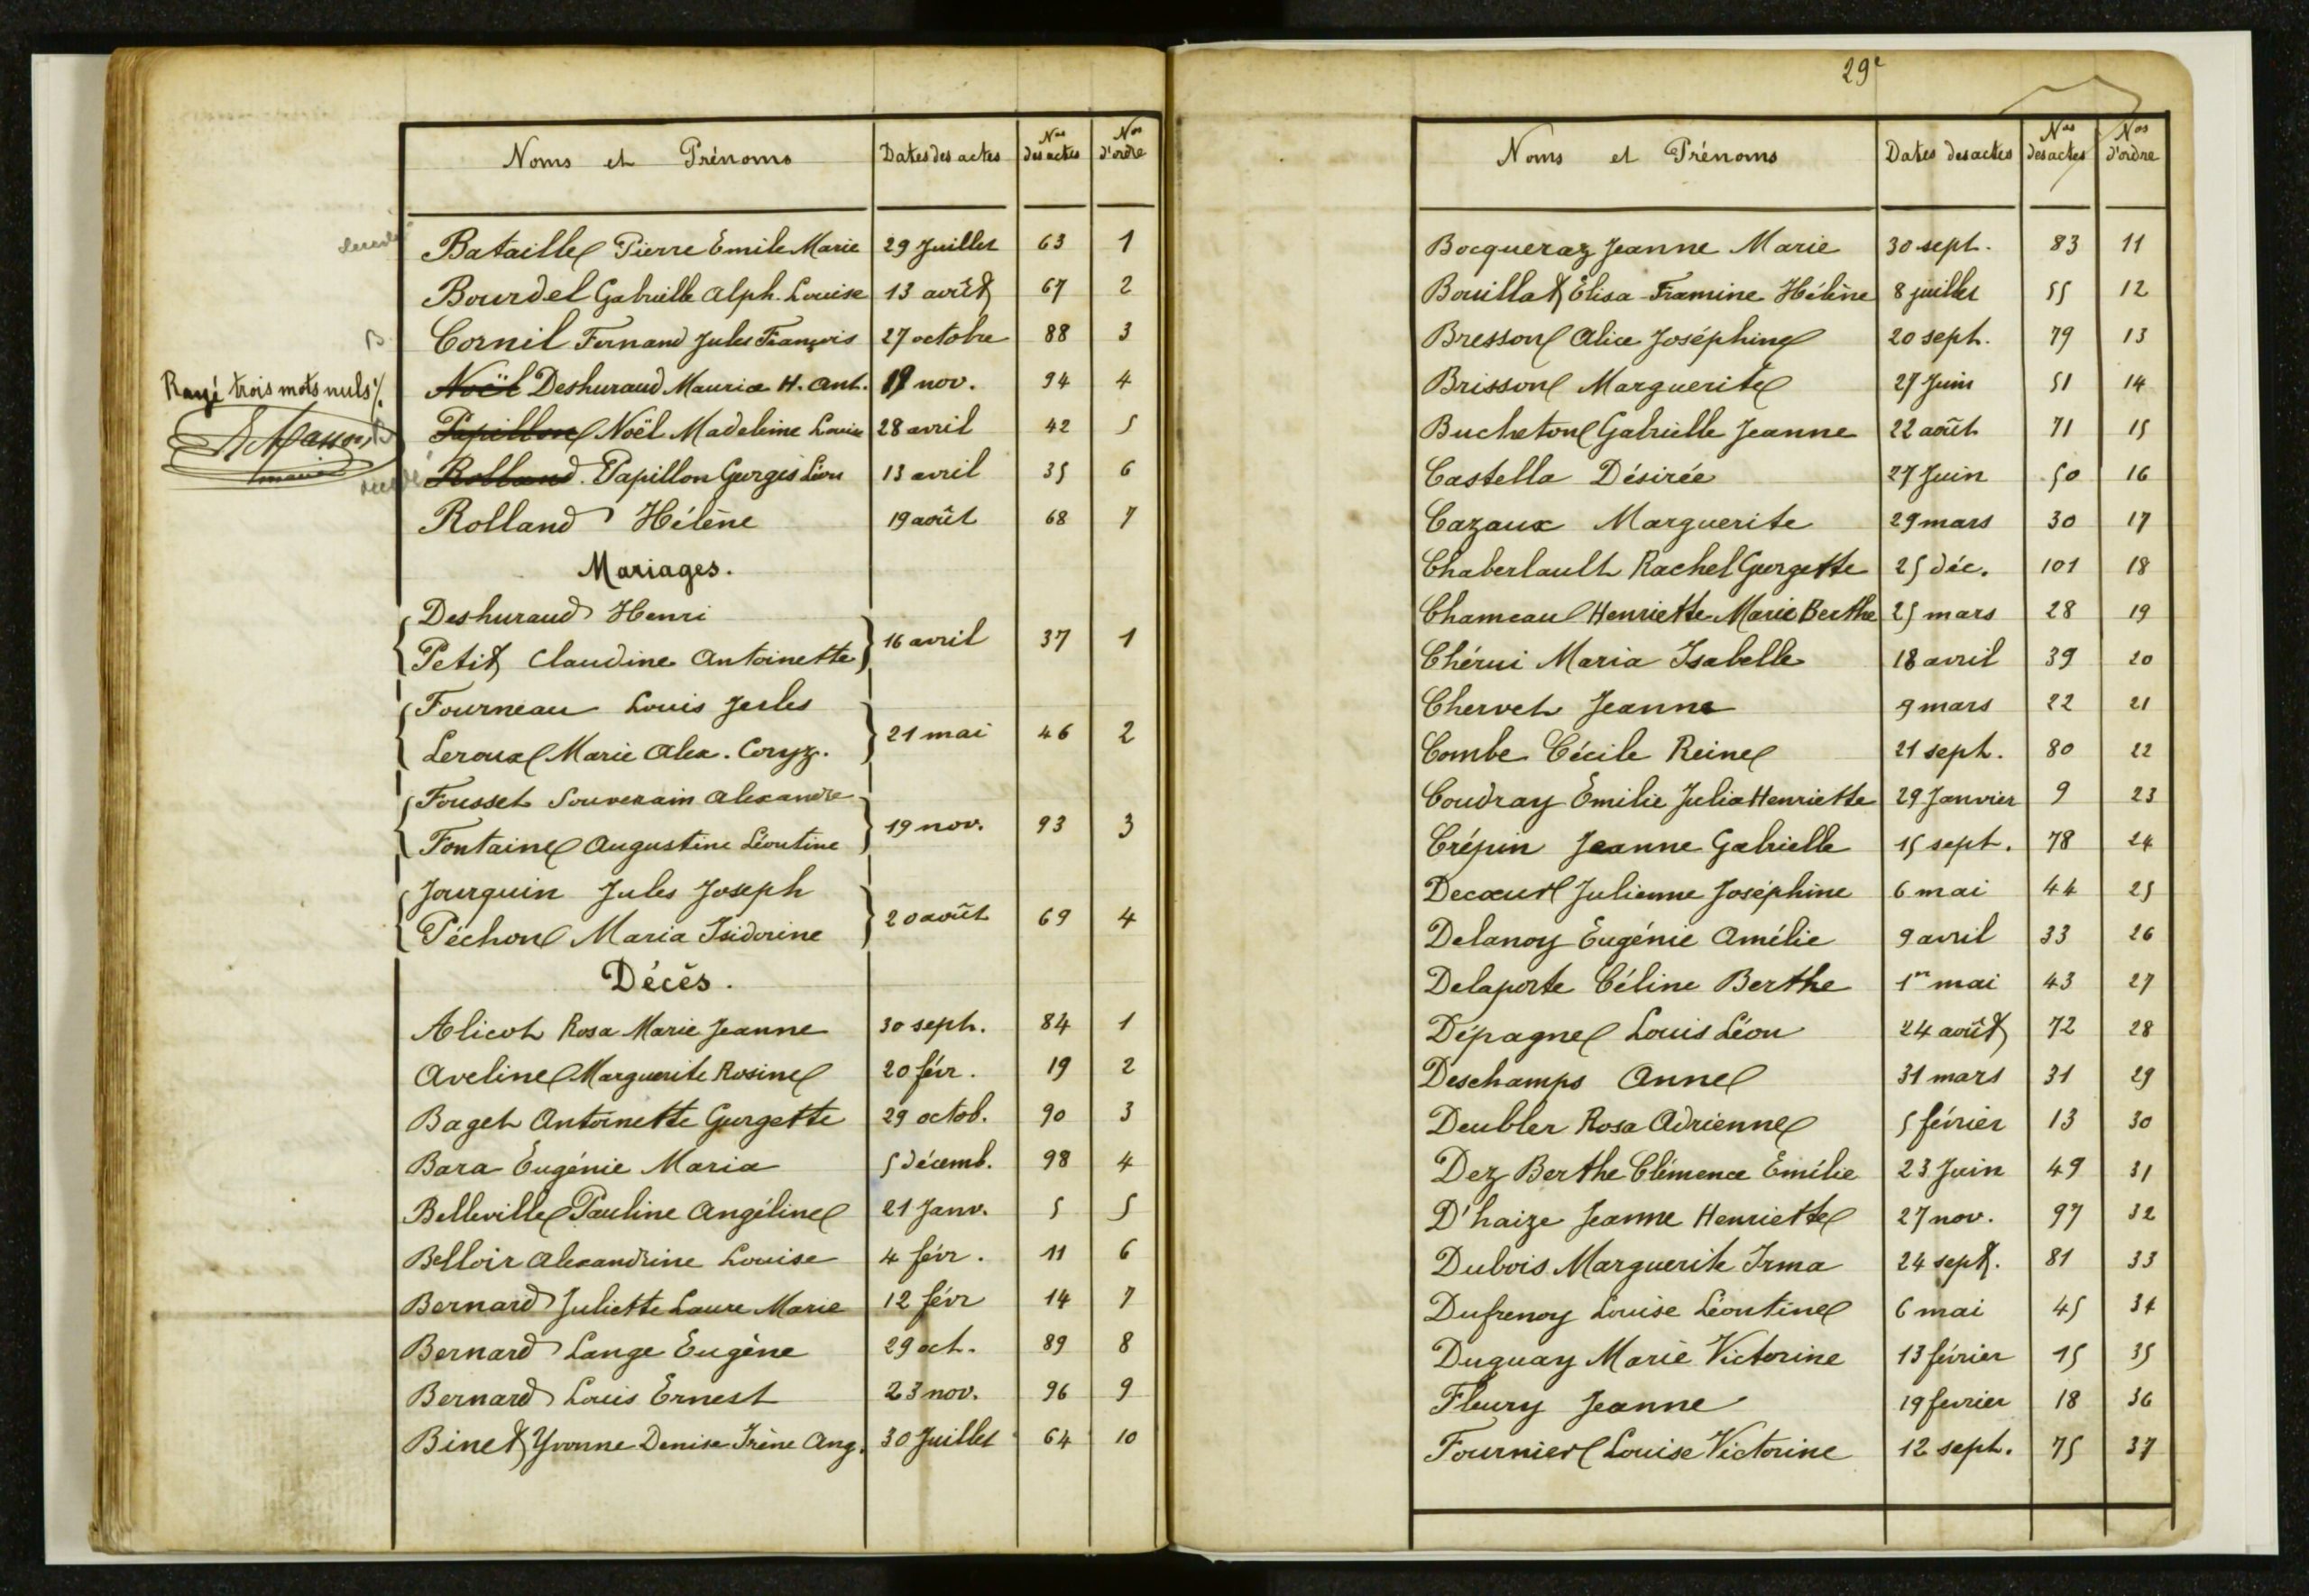 Noms et Prénoms Dates des actes Nos des actes Nos d'ordre
Bataille Pierre Emile Marie 29 Juillet 63 1
Bourdel Gabrielle Alph. Louise 13 août 67 2
Cornil Fernand Jules François 27 octobre 88 3
Noël Deshuraud Maurice H. Ant. 19 nov. 94 4
Rayé trois mots nuls %.
Papillon Noël Madeleine Louise 28 avril 42 5
Rolland. Papillon Georges Léon 13 avril 35 6
maire
Rolland Hélène 19 août 68 7
Mariages.
Deshuraud Henri
Petit Claudine Antoinette 16 avril 37 1
Fourneau Louis Jules
Leroux Marie Alex. 21 mai 46 2
Fousset Souverain Alexandre
Fontaine Augustine Léontine 19 nov. 93 3
Jourquin Jules Joseph
Péchon Maria Isidorine 20 août 69 4
Décès.
Alicot Rosa Marie Jeanne 30 sept. 84 1
Aveline Marguerite Rosine 20 févr. 19 2
Baget Antoinette Georgette 29 octob. 90 3
Bara Eugénie Maria 5 décemb. 98 4
Belleville Pauline Angéline 21 Janv. 5 5
Belloir Alexandrine Louise 4 févr. 11 6
Bernard Juliette Laure Marie 12 févr 14 7
Bernard Lange Eugène 29 oct. 89 8
Bernard Louis Ernest 23 nov. 96 9
Binet Yvonne Denise Irène Ang. 30 Juillet 64 10
29e
Noms et Prénoms Dates des actes Nos des actes Nos d'ordre
Bocqueraz Jeanne Marie 30 sept. 83 11
Bouillat Elisa Framine Hélène 8 juillet 55 12
Bresson Alice Joséphine 20 sept. 79 13
Brisson Marguerite 27 Juin 51 14
Bucheton Gabrielle Jeanne 22 août 71 15
Castella Désirée 27 Juin 50 16
Cazaux Marguerite 29 mars 30 17
Chaberlault Rachel Georgette 25 déc. 101 18
Chameau Henriette Marie Berthe 25 mars 28 19
Chérui Maria Isabelle 18 avril 39 20
Chervet Jeanne 9 mars 22 21
Combe Cécile Reine 21 sept. 80 22
Coudray Emilie Julia Henriette 29 Janvier 9 23
Crépin Jeanne Gabrielle 15 sept. 78 24
Decœur Julienne Joséphine 6 mai 44 25
Delanoy Eugénie Amélie 9 avril 33 26
Delaporte Céline Berthe 1er mai 43 27
Dépagne Louis Léon 24 août 72 28
Deschamps Anne 31 mars 31 29
Deubler Rosa Adrienne 5 février 13 30
Dez Berthe Clémence Emélie 23 Juin 49 31
D'haize Jeanne Henriette 27 nov. 97 32
Dubois Marguerite Irma 24 sept. 81 33
Dufrenoy Louise Léontine 6 mai 45 34
Duguay Marie Victorine 13 février 15 35
Fleury Jeanne 19 fevrier 18 36
Fournier Louise Victorine 12 sept. 75 37